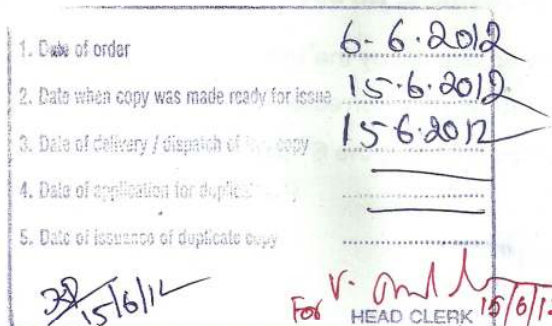 1. Date of order 6-6-2012
2. Date when copy was made ready for issue 15.6.2012
3. Date of delivery / dispatch of copy 15.6.2012
4. Date of application for duplicate
5. Date of issuance of duplicate copy
15/6/12
For V.
HEAD CLERK 15/6/12